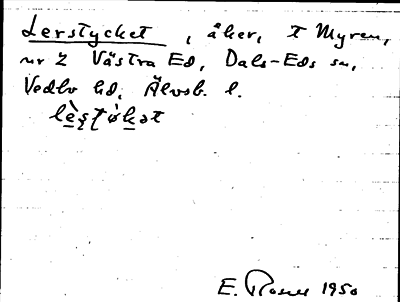 Lerstycket, åker, t Myren,
nr 2 Västra Ed, Dals-Eds sn,
Vedbo hd, Älvsb. l.
E. Rosell 1950